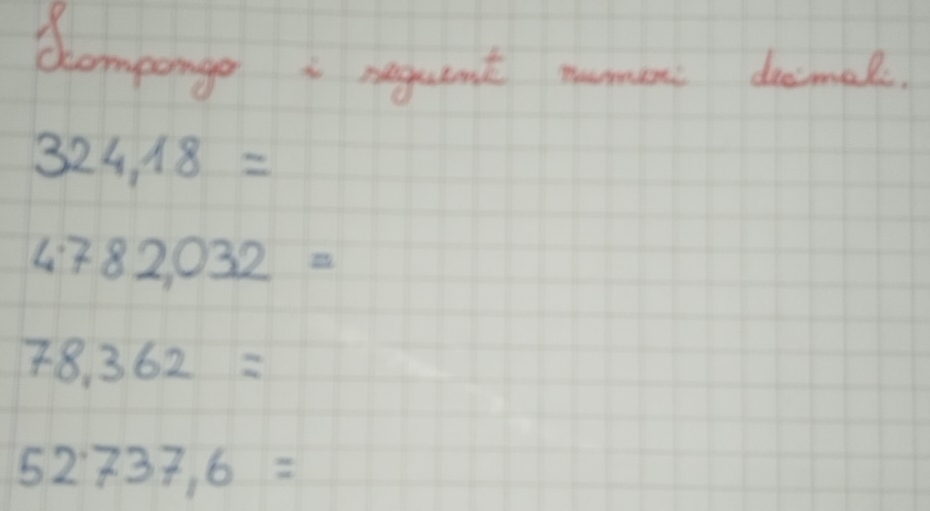 Scompongo i seguenti numeri decimali.
324,18 =
4˙782,032 =
78,362 =
52˙737,6 =